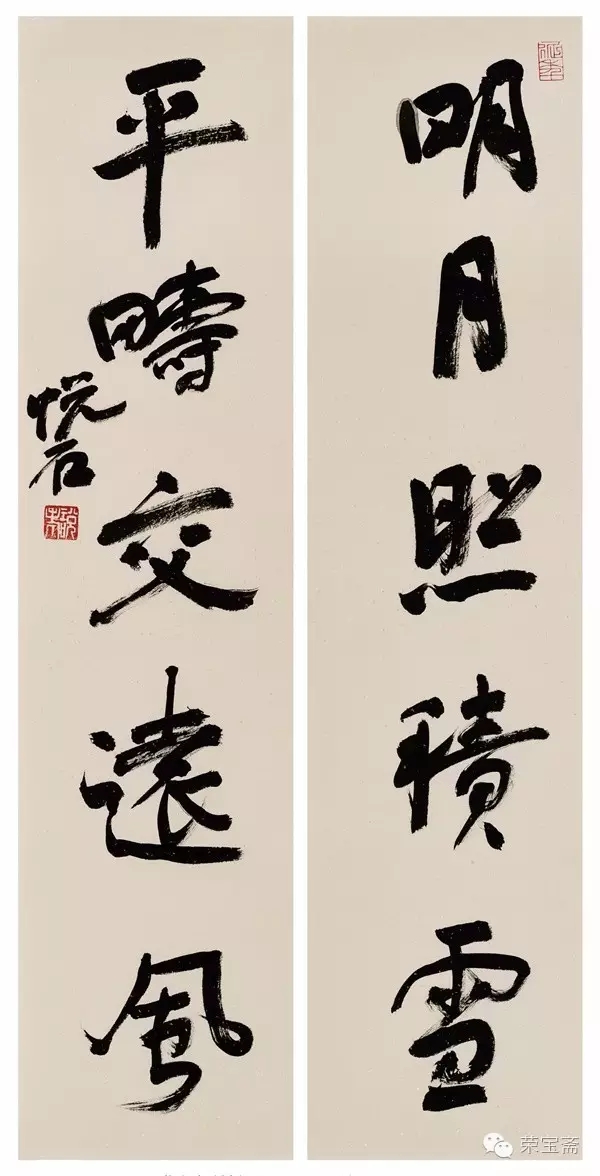 明月照積雪
平疇交遠風
悦石
荣宝斋